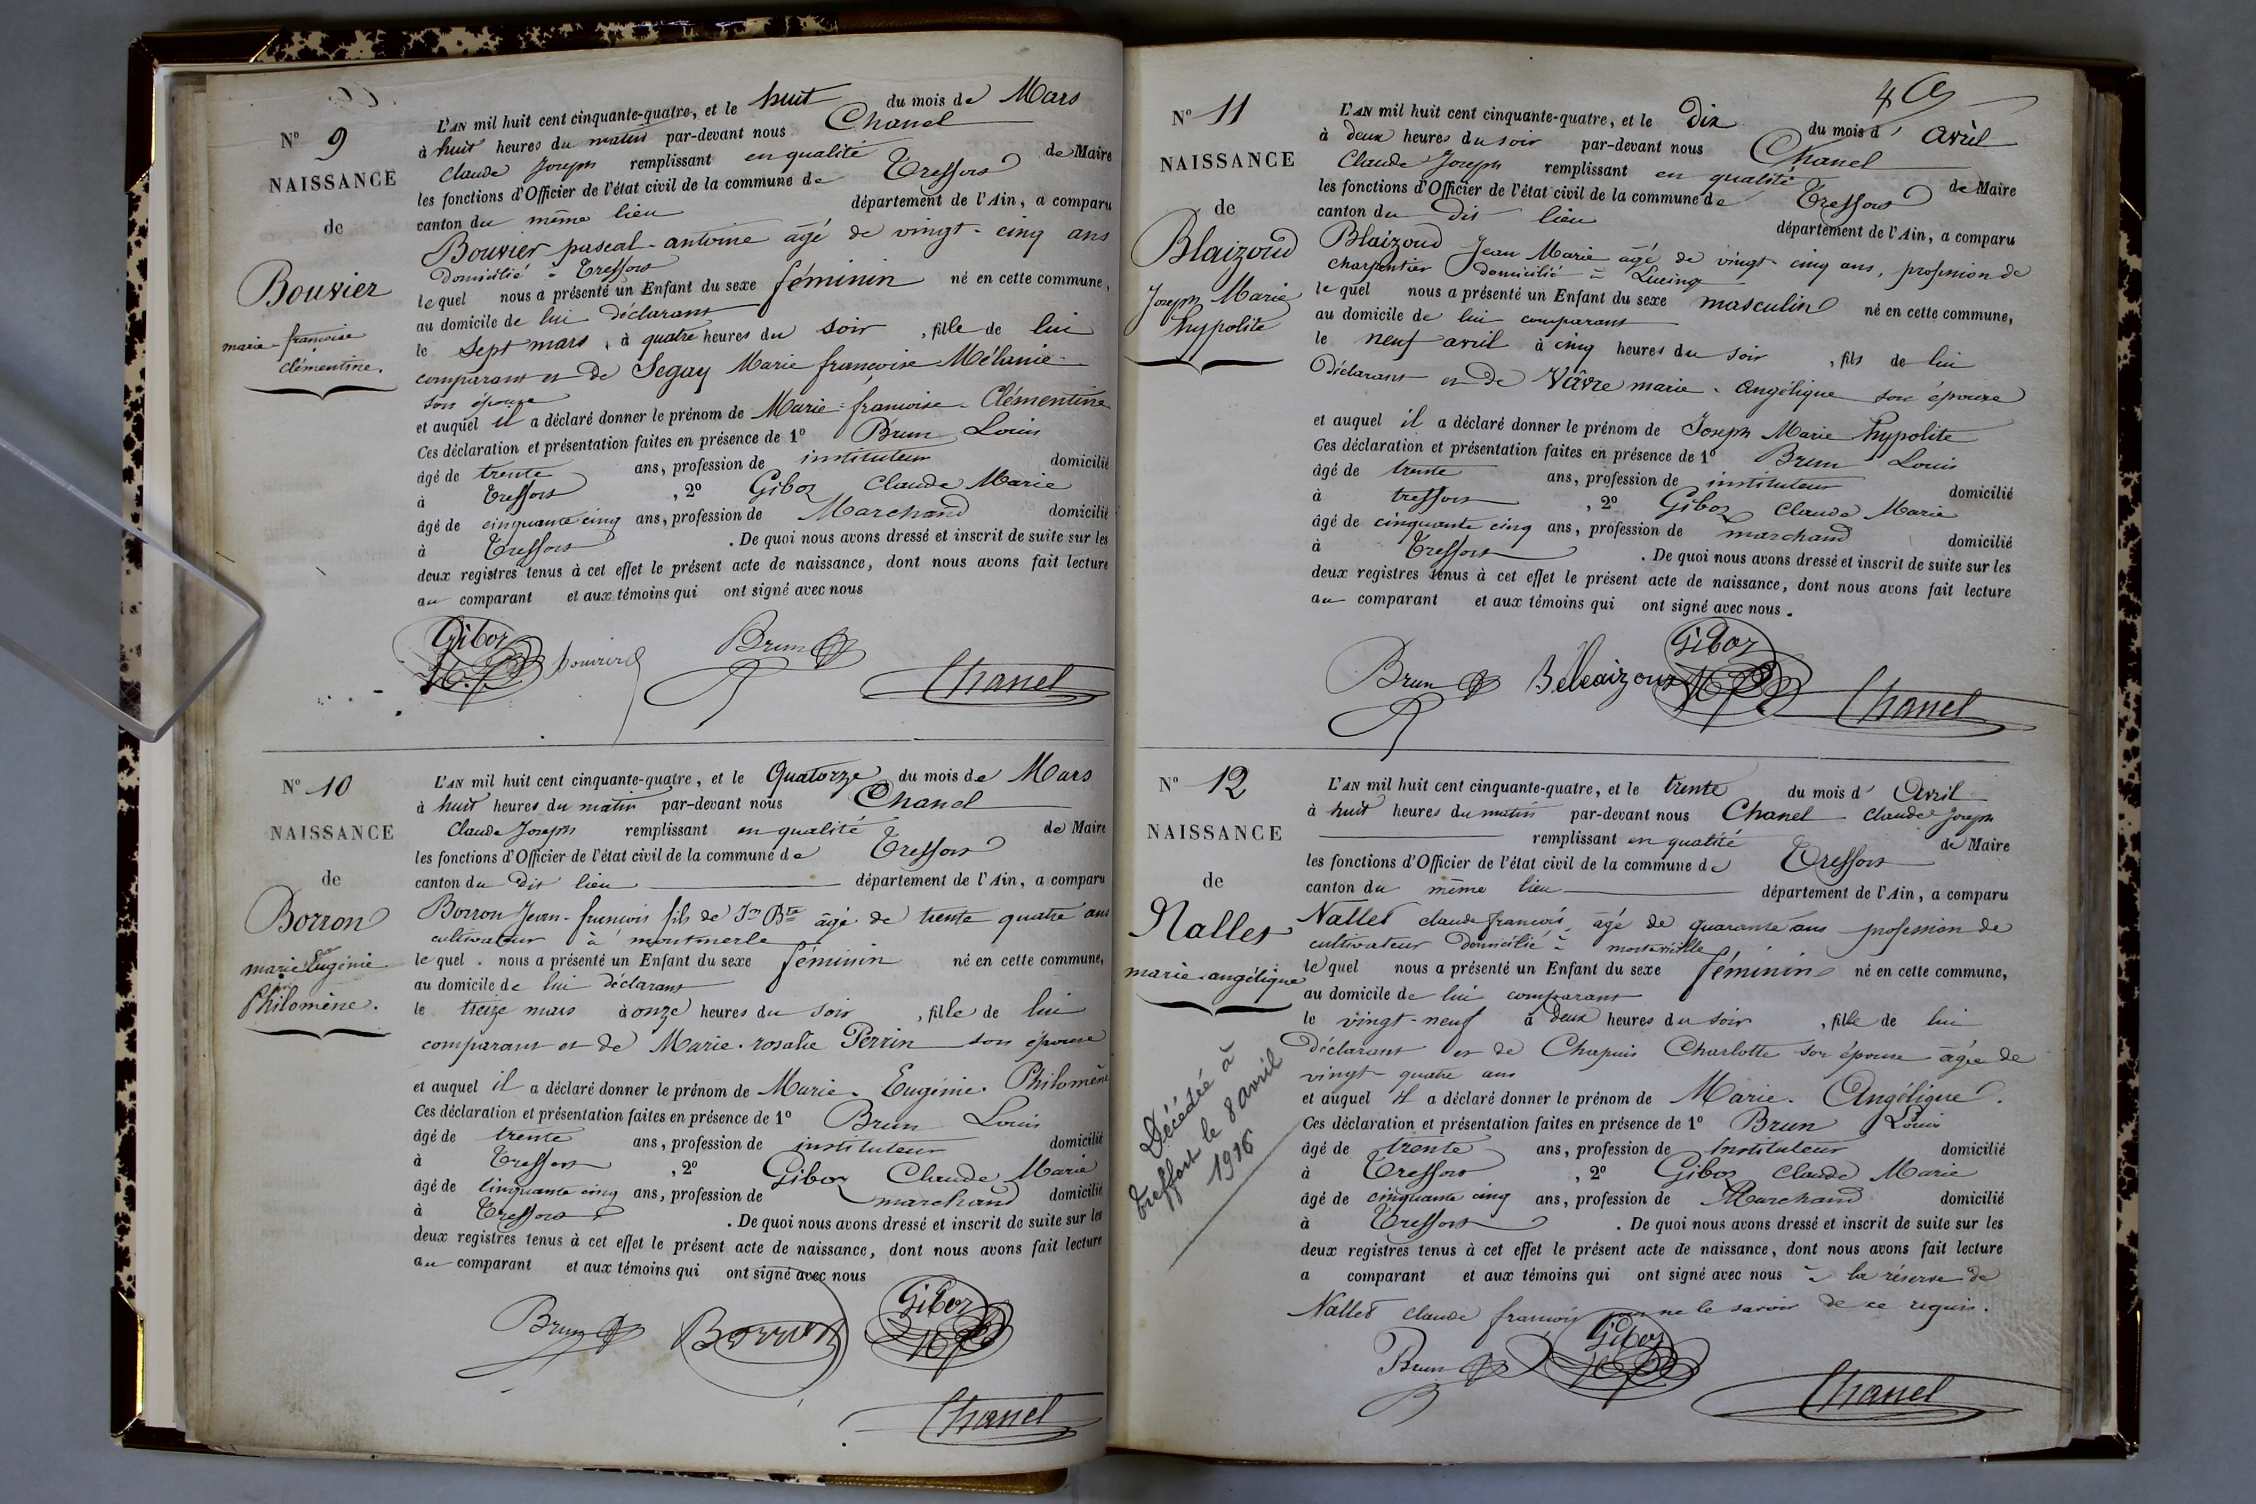 N° 9
NAISSANCE
de
Bouvier
marie françoise
clémentine.
L'AN mil huit cent cinquante-quatre, et le huit du mois de Mars
à huit heures du matin par-devant nous Chanel
Claude Joseph remplissant en qualité de Maire
les fonctions d'Officier de l'état civil de la commune de Treffort
canton du même lieu département de l'Ain, a comparu
Bouvier pascal-antoine âgé de vingt-cinq ans
domicilié à Treffort
lequel nous a présenté un Enfant du sexe féminin né en cette commune,
au domicile de lui déclarant
le sept mars, à quatre heures du soir, fille de lui
comparant et de Segay Marie françoise Mélanie
son épouse
et auquel il a déclaré donner le prénom de Marie-françoise-Clémentine
Ces déclaration et présentation faites en présence de 1° Brun Louis
âgé de trente ans, profession de instituteur domicilié
à Treffort, 2° Giboz Claude Marie
âgé de cinquante cinq ans, profession de Marchand domicilié
à Treffort. De quoi nous avons dressé et inscrit de suite sur les
deux registres tenus à cet effet le présent acte de naissance, dont nous avons fait lecture
au comparant et aux témoins qui ont signé avec nous
Giboz bouvier Brun
Chanel
N° 10
NAISSANCE
de
Borron
marie Eugénie
Philomène.
L'AN mil huit cent cinquante-quatre, et le Quatorze du mois de Mars
à huit heures du matin par-devant nous Chanel
Claude Joseph remplissant en qualité de Maire
les fonctions d'Officier de l'état civil de la commune de Treffort
canton du dit lieu département de l'Ain, a comparu
Borron Jean-françois fils de Jn Bte âgé de trente quatre ans
cultivateur à montmerle
lequel. nous a présenté un Enfant du sexe féminin né en cette commune,
au domicile de lui déclarant
le treize mars à onze heures du soir, fille de lui
comparant et de Marie-rosalie Perrin son épouse
et auquel il a déclaré donner le prénom de Marie-Eugénie-Philomène
Ces déclaration et présentation faites en présence de 1° Brun Louis
âgé de trente ans, profession de instituteur domicilié
à Treffort, 2° Giboz Claude Marie
âgé de cinquante cinq ans, profession de marchand domicilié
à Treffort. De quoi nous avons dressé et inscrit de suite sur les
deux registres tenus à cet effet le présent acte de naissance, dont nous avons fait lecture
au comparant et aux témoins qui ont signé avec nous
Brun Borron Giboz
Chanel
4
N° 11
NAISSANCE
de
Blaizoud
Joseph Marie
hypolite
L'AN mil huit cent cinquante-quatre, et le Dix du mois d' avril
à deux heures du soir par-devant nous Chanel
Claude Joseph remplissant en qualité de Maire
les fonctions d'Officier de l'état civil de la commune de Treffort
canton du dit lieu département de l'Ain, a comparu
Blaizoud Jean Marie âgé de vingt-cinq ans, profession de
charpentier domicilié à Lucing
lequel nous a présenté un Enfant du sexe masculin né en cette commune,
au domicile de lui comparant
le neuf avril à cinq heures du soir, fils de lui
déclarant et de Vâvre marie-Angélique son épouse
et auquel il a déclaré donner le prénom de Joseph Marie hypolite
Ces déclaration et présentation faites en présence de 1° Brun Louis
âgé de trente ans, profession de instituteur domicilié
à treffort, 2° Giboz Claude Marie
âgé de cinquante cinq ans, profession de marchand domicilié
à Treffort. De quoi nous avons dressé et inscrit de suite sur les
deux registres tenus à cet effet le présent acte de naissance, dont nous avons fait lecture
au comparant et aux témoins qui ont signé avec nous.
Brun Giboz
Chanel
N° 12
NAISSANCE
de
Nallet
marie-angélique
Décédée à
treffort le 8 avril
1916
L'AN mil huit cent cinquante-quatre, et le trente du mois d' Avril
à huit heures du matin par-devant nous Chanel Claude Joseph
remplissant en qualité de Maire
les fonctions d'Officier de l'état civil de la commune de Treffort
canton du même lieu département de l'Ain, a comparu
Nallet claude françois, âgé de quarante ans profession de
cultivateur domicilié à
lequel nous a présenté un Enfant du sexe féminin né en cette commune,
au domicile de lui comparant
le vingt-neuf à deux heures du soir, fille de lui
déclarant et de Chapuis Charlotte son épouse âgée de
vingt-quatre ans
et auquel il a déclaré donner le prénom de Marie-Angélique.
Ces déclaration et présentation faites en présence de 1° Brun Louis
âgé de trente ans, profession de Instituteur domicilié
à Treffort, 2° Giboz Claude Marie
âgé de cinquante cinq ans, profession de Marchand domicilié
à Treffort. De quoi nous avons dressé et inscrit de suite sur les
deux registres tenus à cet effet le présent acte de naissance, dont nous avons fait lecture
a comparant et aux témoins qui ont signé avec nous à la réserve de
Nallet claude françois pour ne le savoir de ce requis.
Brun Giboz
Chanel